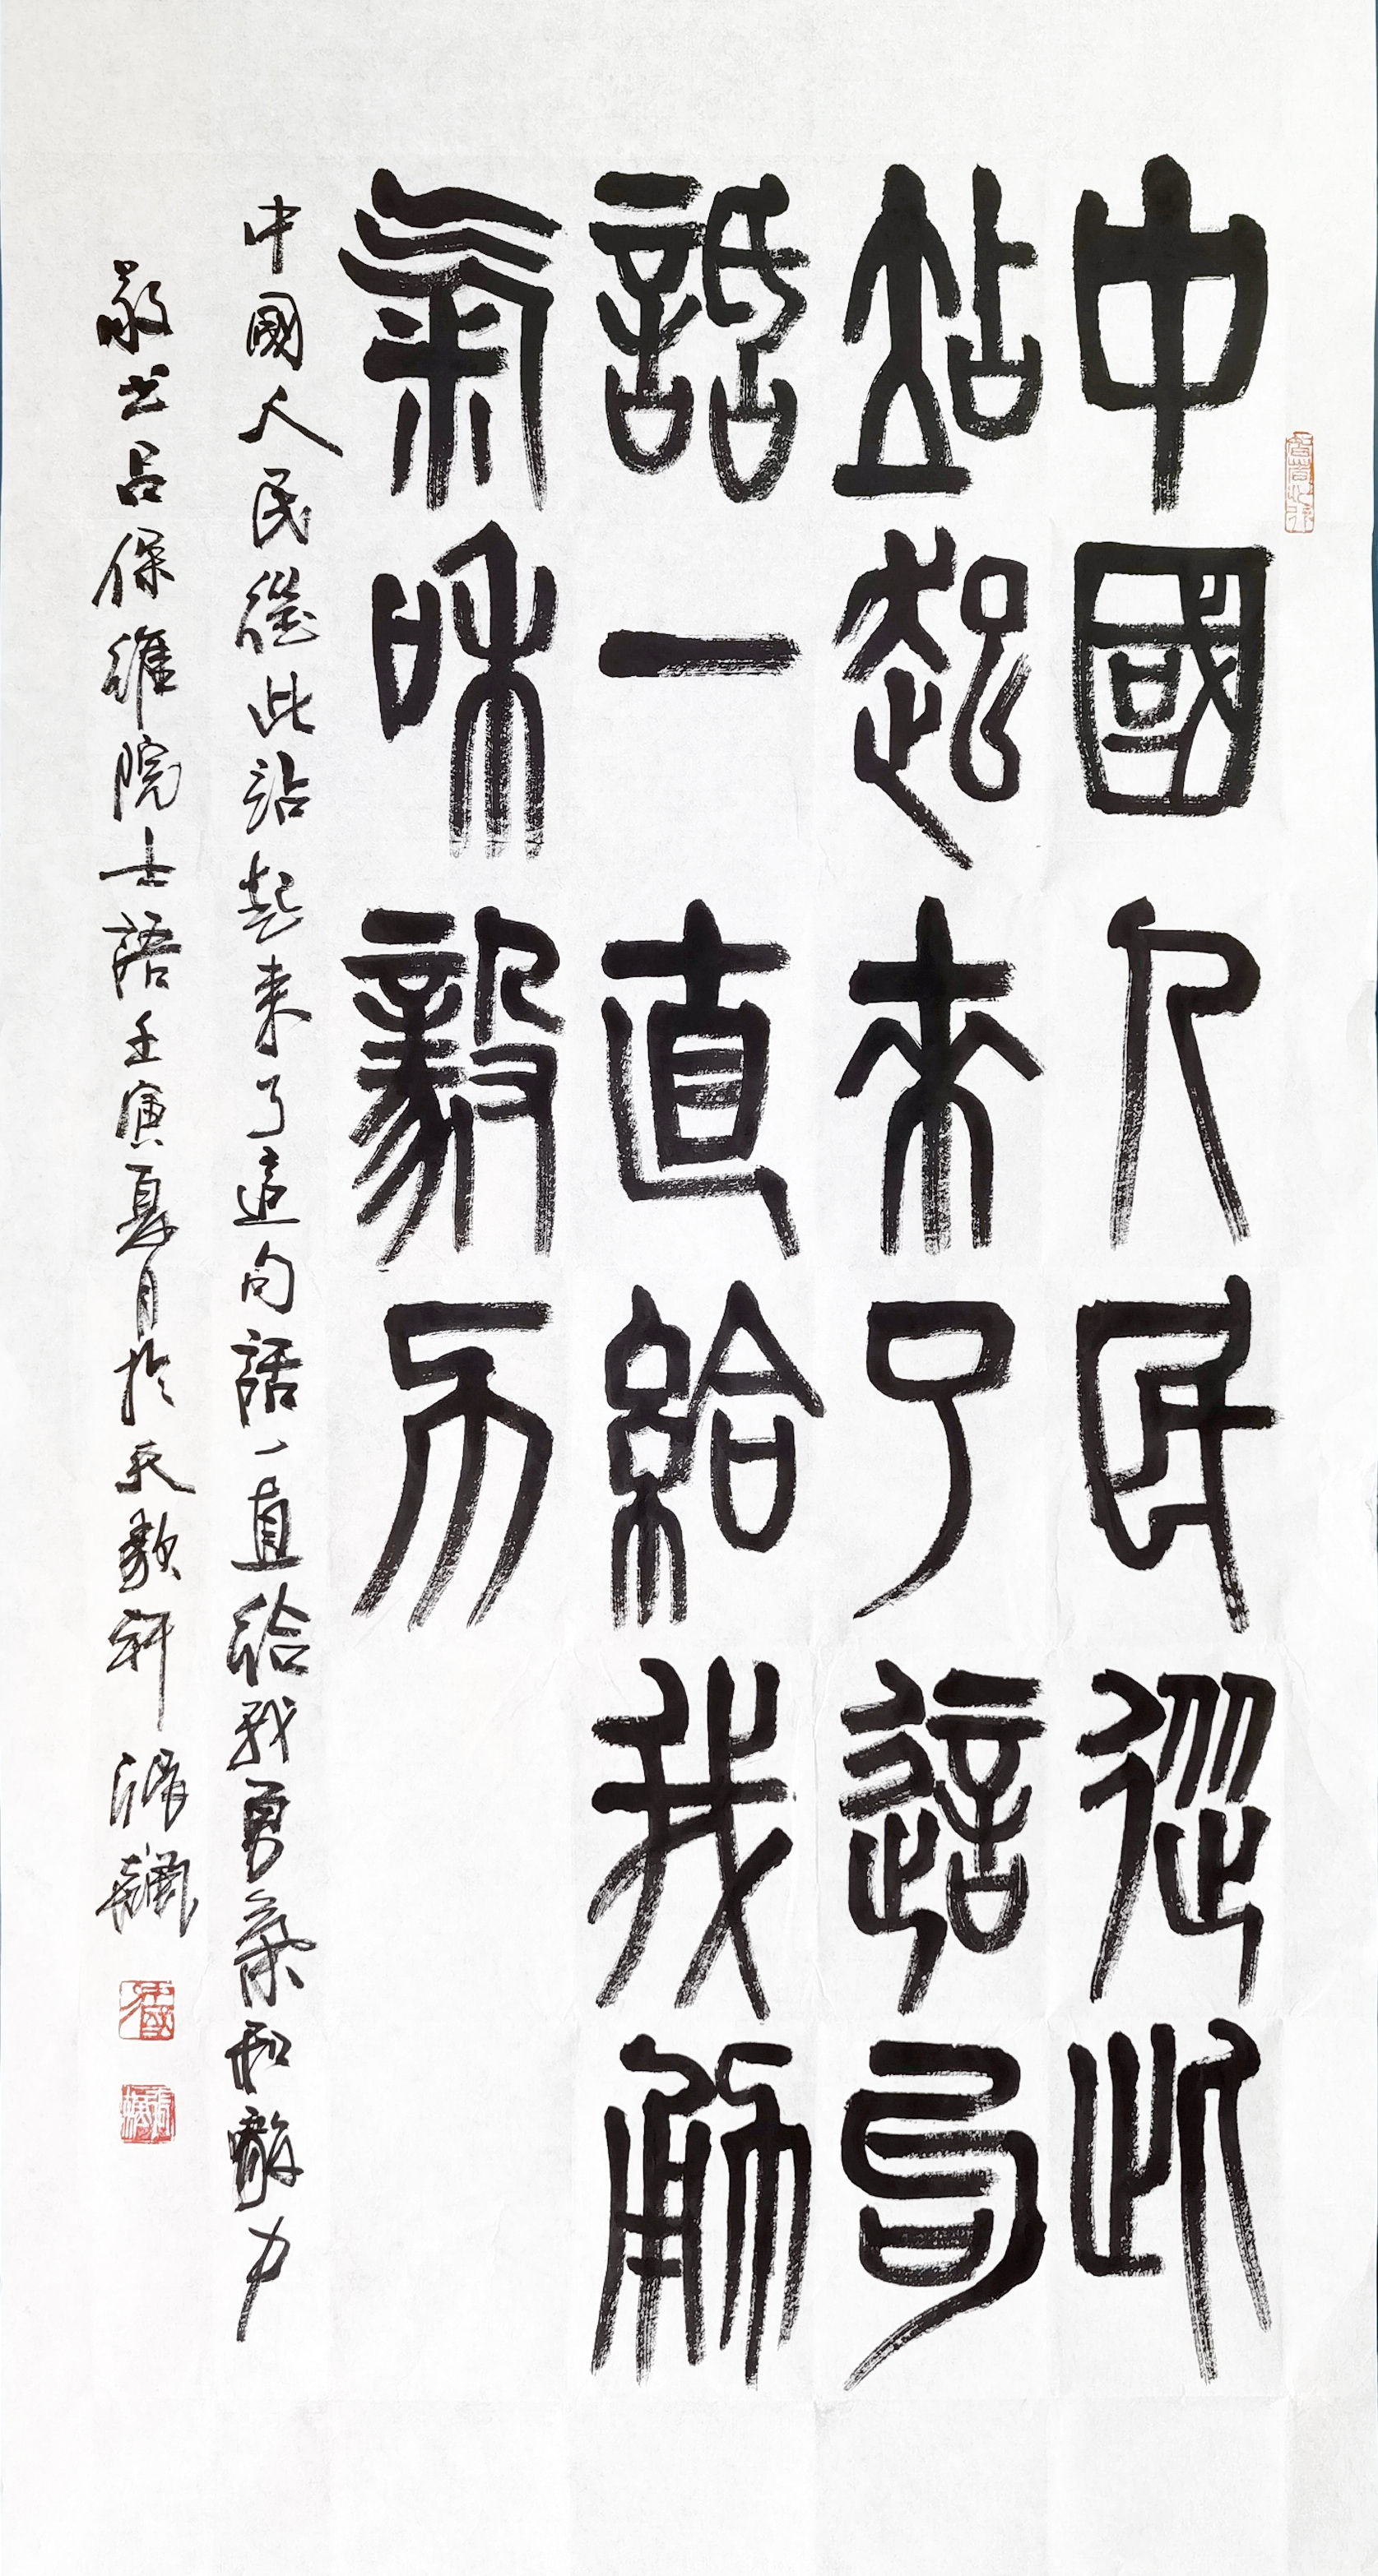 中國人民從此
站起來了這句
話一直給我勇
氣和毅力
中國人民從此站起來了這句話一直給我勇氣和毅力
敬書呂保維院士語壬寅夏月於天歌軒